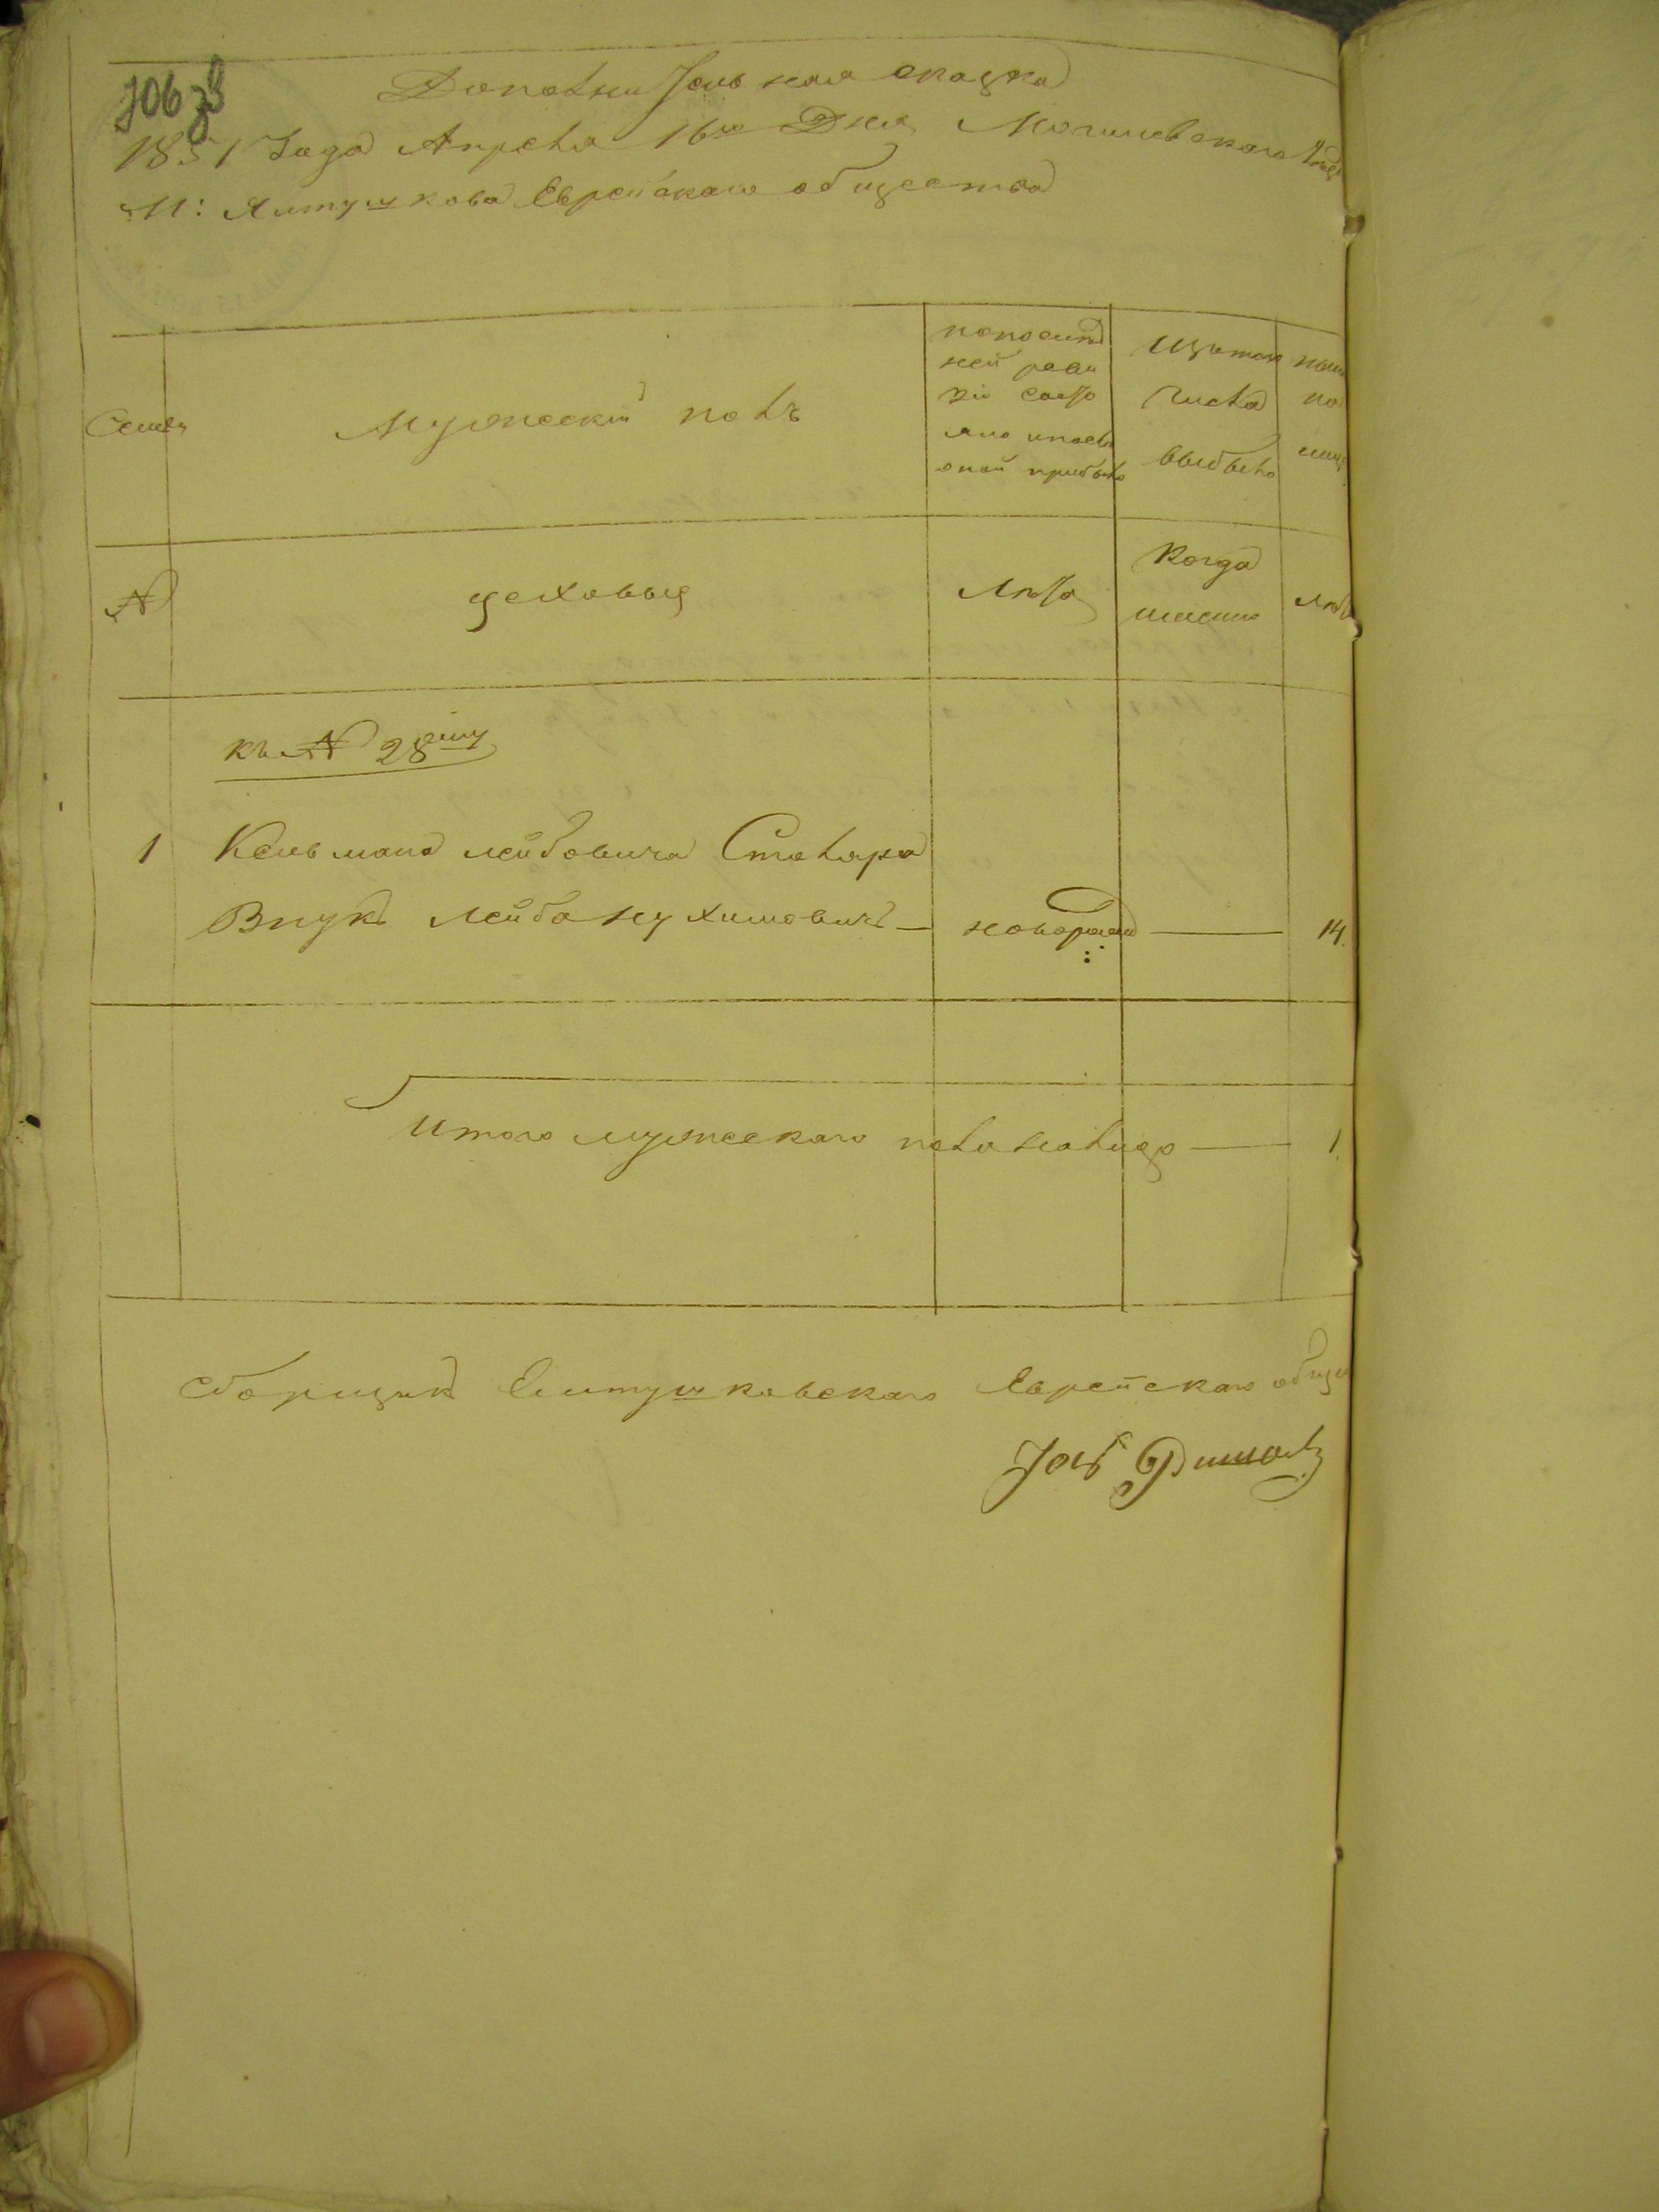 106 зв
Дополнительная сказка
1851 Года Апреля 16го Дня Могилевского Уез
М: Ялтушкова Еврейскаго общества
Семьи
Мужескій полъ
попослед
ней реви
зіи состо
яло ипосль
оной прибыло
Изътого
Числа
выбыло
ны
на
лиц
№
цеховыя
Лета
Когда
именно
Лет
къ № 28му
1 Кельмана Лейбовича Столяра
Внукъ Лейба Нухимовичъ — новорожд: — 14.
Итого мужескаго пола налицо — 1.
Сборщикъ Елтушковскаго Еврейскаго обще